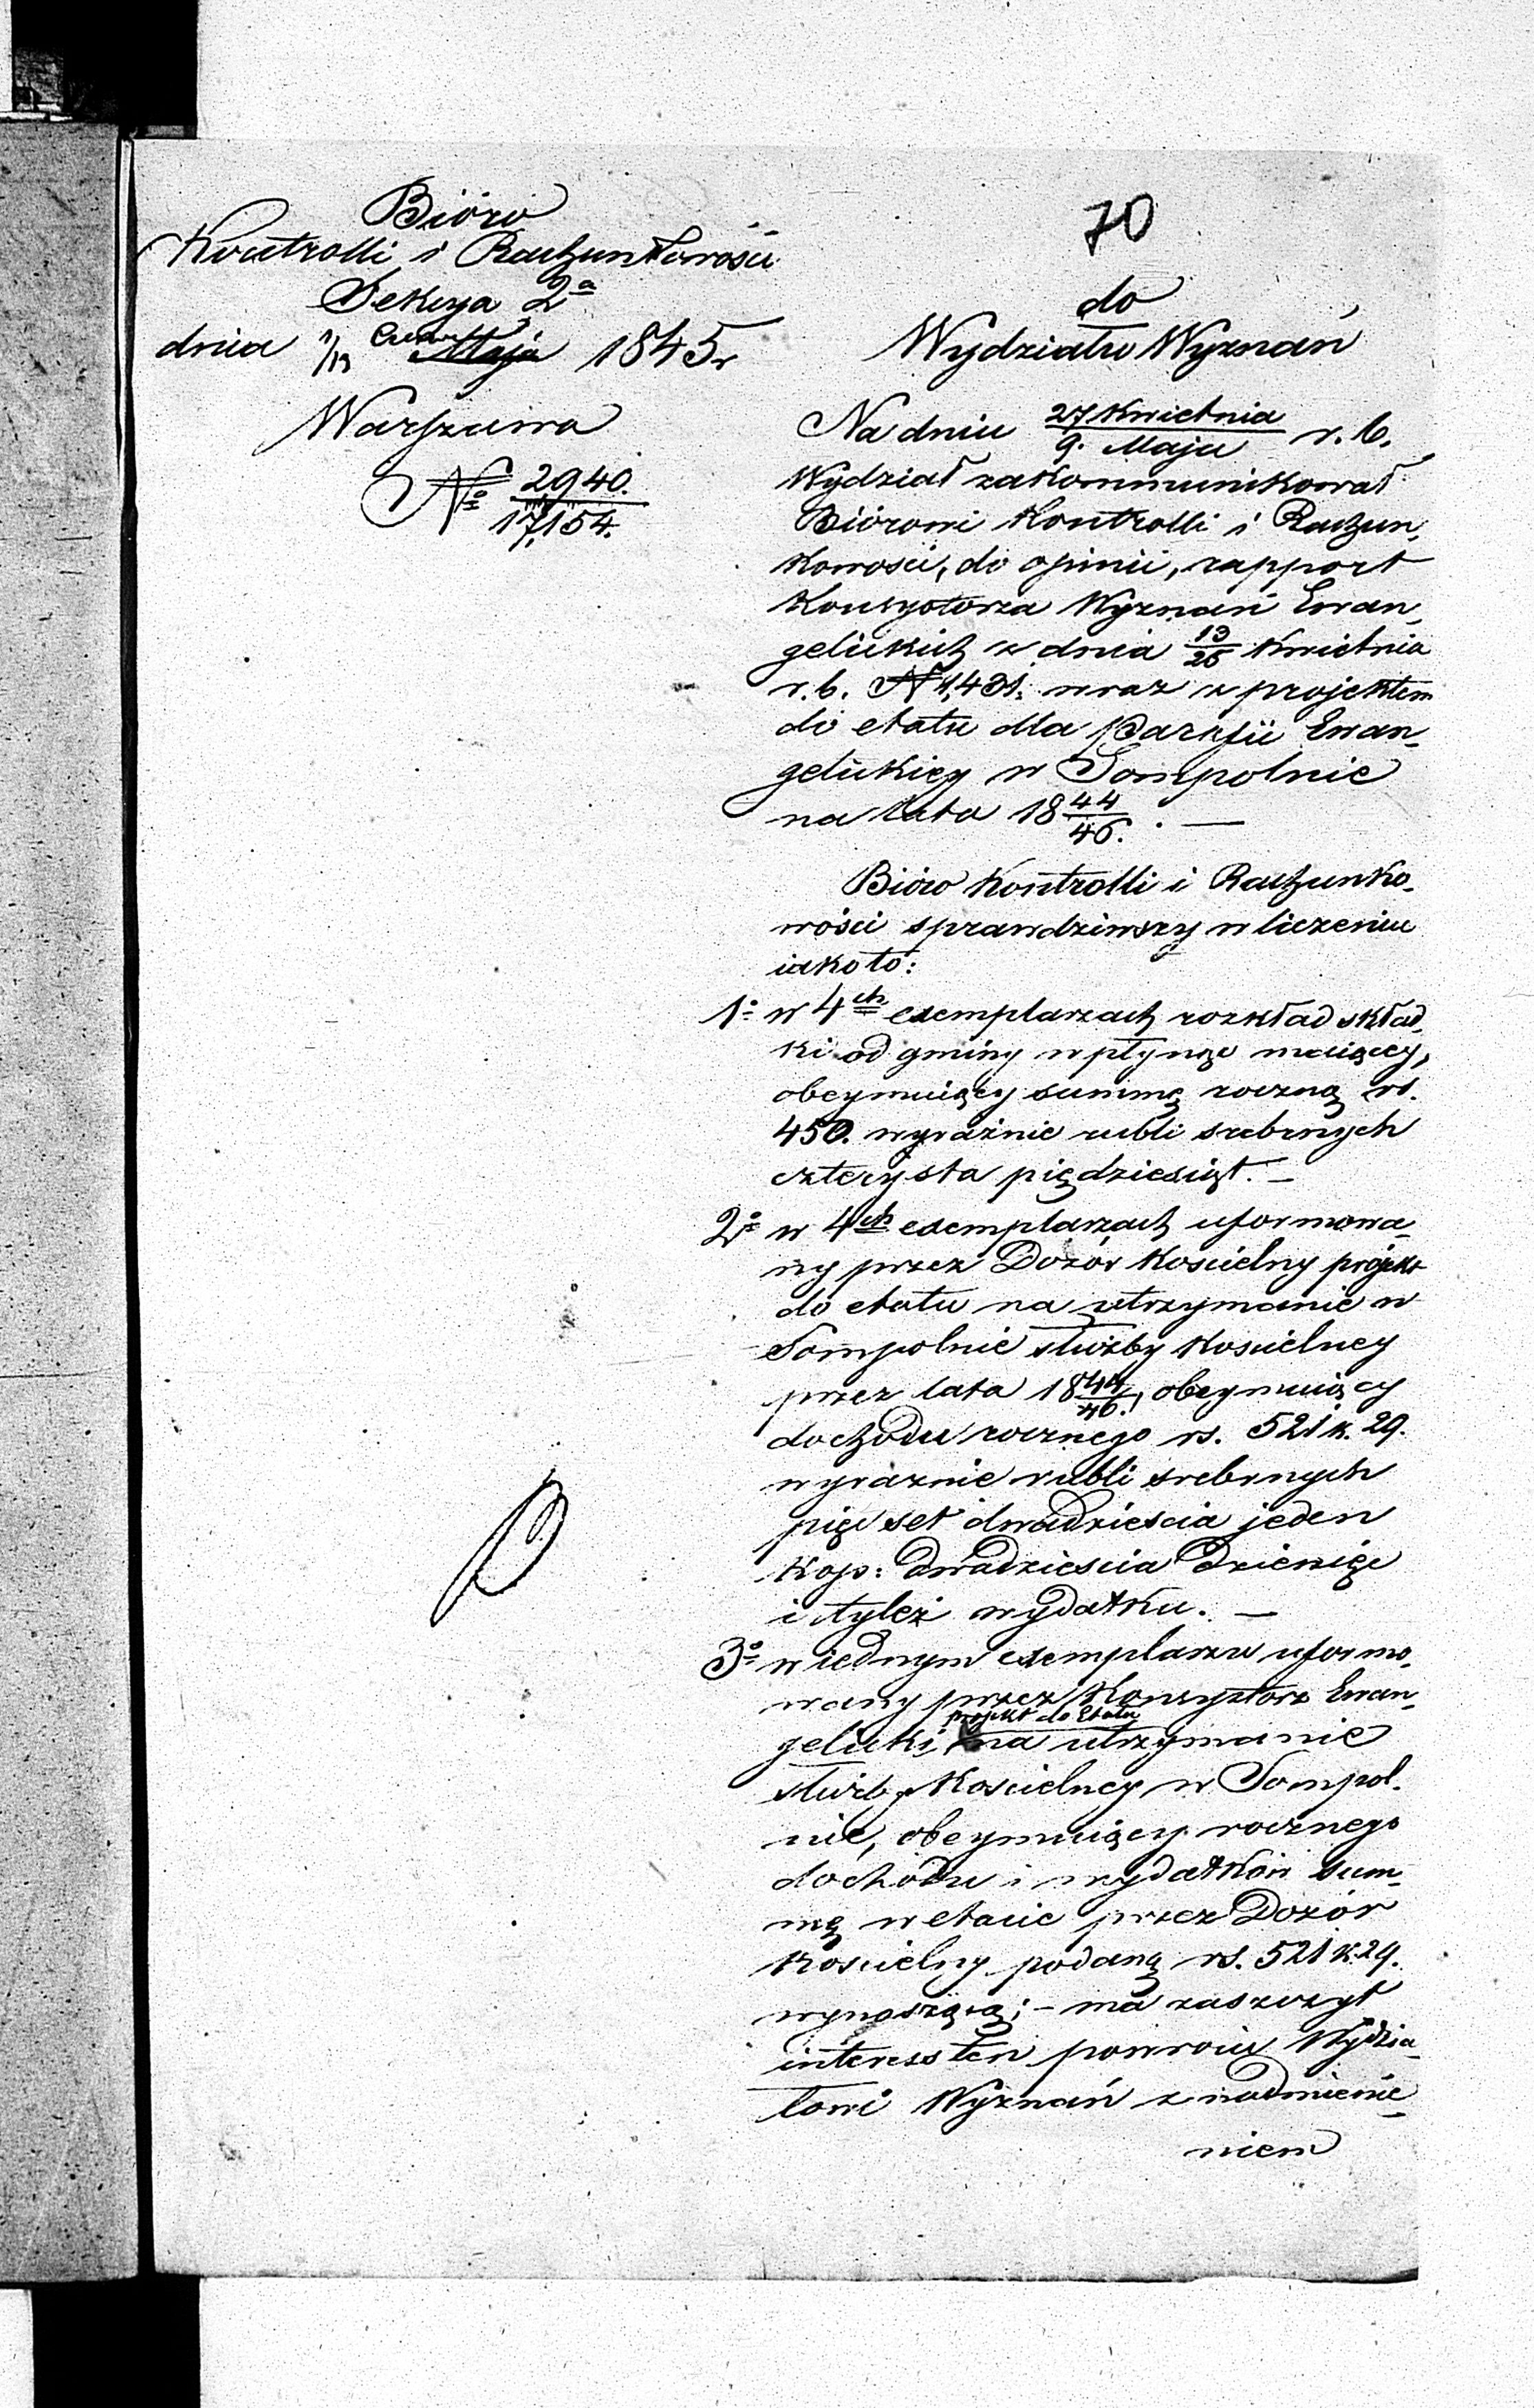 Bióro
Kontrolli i Rachunkowości
Sekcya 2a
dnia 1/13 Czerw Maja 1845 r
Warszawa
No 2940./17,154.
70
do
Wydziału Wyznań
Na dniu 27 Kwietnia/9. Maja r. b.
Wydział zakommunikował
Biórowi Kontrolli i Rachun,
kowości, do opinii, rapport
Konsystorza Wyznań Ewan,
gelickich z dnia 13/25 Kwietnia
r. b. N 1,431. wraz z projektem
do etatu dla Parafii Ewan,
gelickiey w Sompolnie
na lata 18 44/46. —
Bióro Kontrolli i Rachunko,
wości sprawdziwszy w liczeniu
iako to:
1o w 4ch exemplarzach rozkład skład,
ki od gminy wpłynąć maiącey,
obeymuiący summę roczną rs.
450. wyraźnie rubli srebrnych
czterysta piędziesiąt. —
2o w 4ch exemplarzach uformowa,
ny przez Dozór Kościelny projekt
do etatu na utrzymanie w
Sompolnie służby Kościelney
przez lata 18 44/46., obeymuiący
dochodu rocznego rs. 521 k. 29.
wyraźnie rubli srebrnych
pięć set dwadzieścia jeden
kop: dwadzieścia dziewięć
i tyleż wydatku. —
3o w iednym exemplarzu uformo,
wany przez Konsystorz Ewan,
projekt do Etatu
gelicki, na utrzymanie
służby Kościelney w Sompol,
nie, obeymuiący rocznego
dochodu i wydatków sum,
mę w etacie przez Dozór
Kościelny podaną rs. 521 k. 29.
wynoszącą; – ma zaszczyt
interess ten powrócić Wydzia,
łowi Wyznań z nadmienie,
niem